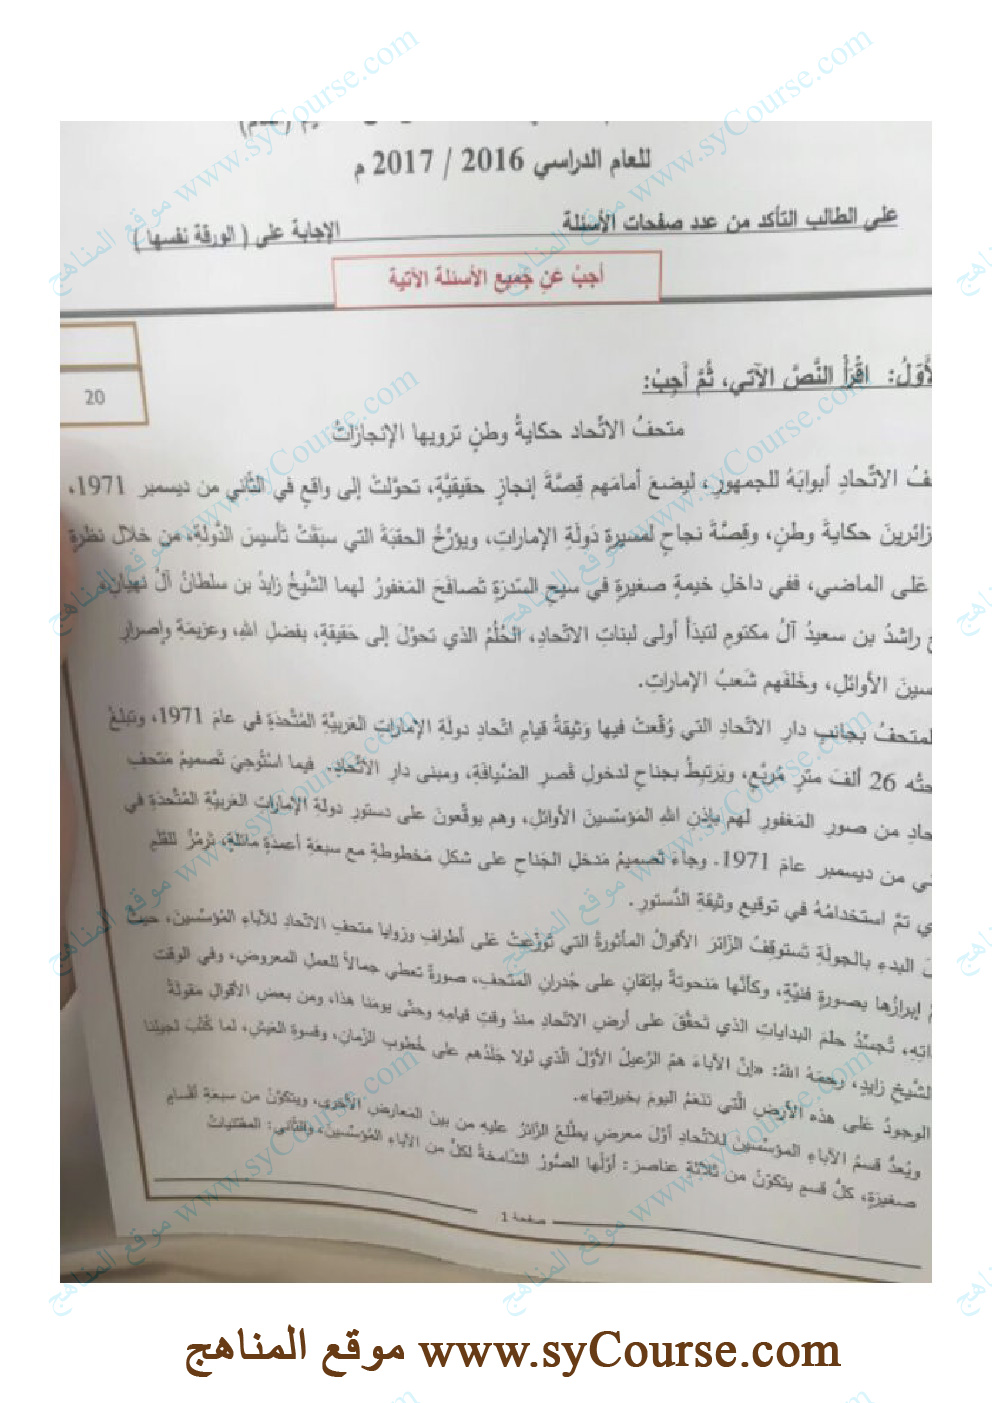 للعام الدراسي 2016 / 2017 م
على الطالب التأكد من عدد صفحات الأسئلة
الإجابة على ( الورقة نفسها )
أجبْ عَنِ جَميعِ الأسئلةِ الآتيةِ
20
اقْرَأْ النَّصَّ الآتي، ثُمَّ أجِبْ:
متحفُ الاتّحاد حكايةُ وطنٍ ترويها الإنجازاتُ
الاتّحادِ أبوابَهُ للجمهورِ، ليضعَ أمامَهم قِصَّةَ إنجازٍ حقيقيَّةٍ، تحوّلتْ إلى واقعٍ في الثّاني من ديسمبر 1971،
حكايةَ وطنٍ، وقِصَّةَ نجاحٍ لمسيرةِ دَولةِ الإماراتِ، ويؤرّخُ الحقبَةَ التي سبَقَتْ تأسيسَ الدَّولةِ، من خلال نظرةٍ
عَلى الماضي، ففي داخلِ خيمةٍ صغيرةٍ في سيحِ السّدرَةِ تَصافَحَ المَغفورُ لهما الشّيخُ زايدُ بن سلطانُ آلُ نهيان،
راشدُ بن سعيدُ آلُ مكتومٍ لتبدَأَ أولى لبناتِ الاتّحادِ، الحُلْمُ الذي تحوّلَ إلى حَقيقةٍ، بفضلِ اللهِ، وعزيمَةِ وإصرارِ
الأوائلِ، وخَلفَهم شَعبُ الإماراتِ.
بجانبِ دارِ الاتّحادِ التي وُقِّعتْ فيها وَثيقةُ قيامِ اتّحادِ دولةِ الإماراتِ العَربيَّةِ المُتَّحدَةِ في عامِ 1971، وتبلغُ
26 ألفَ مترٍ مُربّعٍ، ويَرتبطُ بجناحٍ لدخولِ قَصرِ الضّيافَةِ، ومبنى دارِ الاتّحادِ. فيما اسْتُوحِيَ تَصميمُ مَتحفِ
من صورِ المَغفورِ لهم بإذنِ اللهِ المؤسّسينَ الأوائلِ، وهم يوقّعونَ على دستورِ دولةِ الإماراتِ العَربيَّةِ المُتَّحدَةِ في
من ديسمبر عامَ 1971. وجاءَ تَصميمُ مَدخلِ الجَناحِ على شكلِ مَخطوطةٍ مع سبعةِ أعمدةٍ مائلةٍ، تَرمُزُ للقلمِ
تمَّ استخدامُهُ في توقيعِ وثيقةِ الدُّستورِ.
البدءِ بالجولَةِ تَستوقِفُ الزّائرَ الأقوالُ المأثورةُ التي تَوزّعتْ عَلى أطرافِ وزوايا متحفِ الاتّحادِ للآباءِ المُؤسّسينَ، حيثُ
إبرازُها بصورةٍ فنيَّةٍ، وكأنَّها مَنحوتةٌ بإتقانٍ على جُدرانِ المَتحفِ، صورةً تعطي جمالاً للعملِ المعروضِ، وفي الوقت
تُجسّدُ حلمَ البداياتِ الذي تَحقَّقَ على أرضِ الاتّحادِ منذُ وقتِ قيامِهِ وحتّى يومِنا هذا، ومن بعضِ الأقوالِ مَقولةُ
الشّيخِ زايدٍ، رحمَهُ اللهُ: «إنَّ الآباءَ همُ الرَّعيلُ الأوّلُ الّذي لولا جَلَدُهم على خُطوبِ الزّمانِ، وقسوةِ العَيشِ، لما كُتبَ لجيلنا
الوجودُ عَلى هذه الأرضِ الّتي نَنعَمُ اليومَ بخيراتها».
ويُعدُّ قسمُ الآباءِ المؤسّسينَ للاتّحادِ أوّلَ معرضٍ يطّلعُ الزّائرُ عليهِ من بينِ المَعارضِ الأخرى، ويتكوّنُ من سبعةِ أقسامٍ
صغيرَةٍ، كلُّ قسمٍ يتكوّنُ من ثلاثةِ عناصرَ: أوّلها الصّورُ الشّامخةُ لكلٍّ من الآباءِ المُؤسّسينَ، والثّاني: المقتنياتُ
صفحة 1
موقع المناهج www.syCourse.com